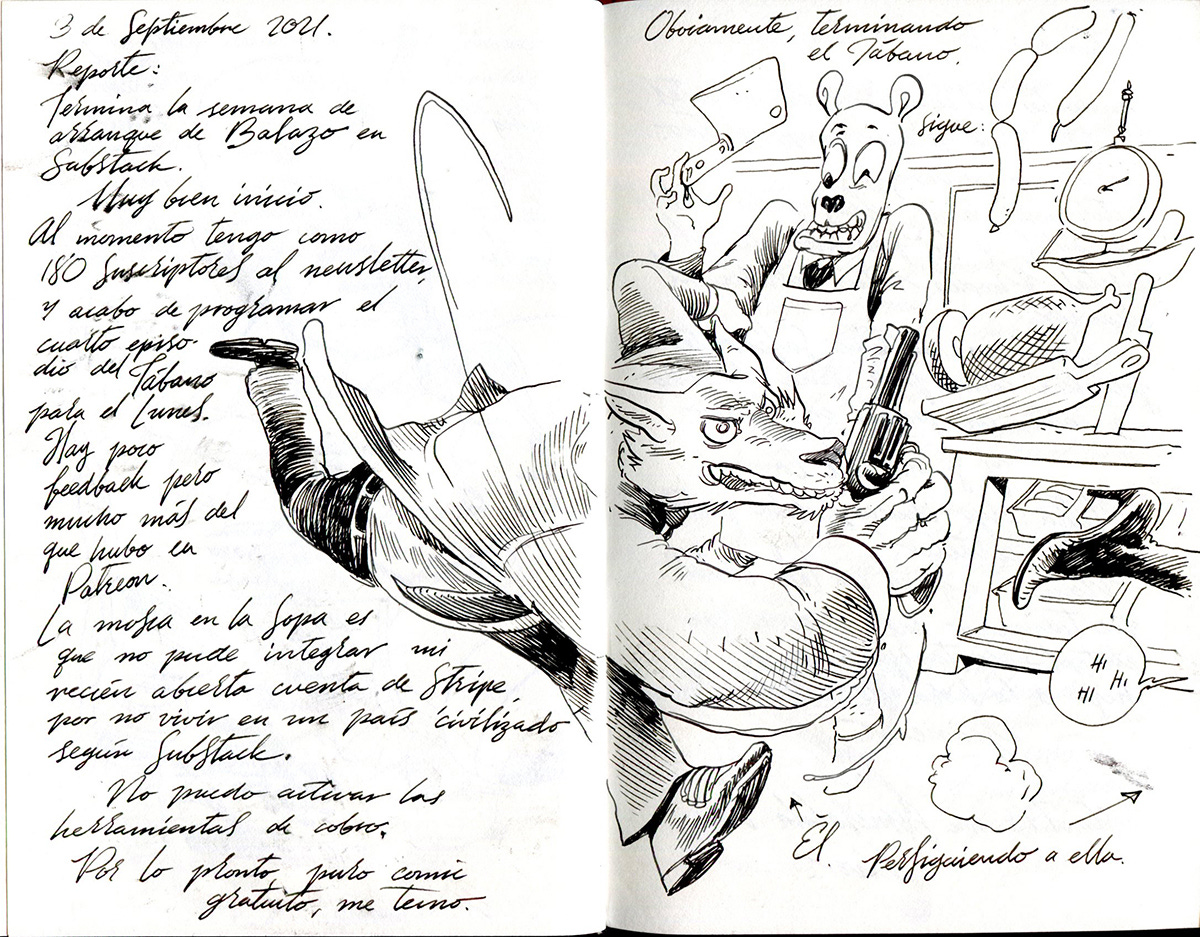 3 de Septiembre 2021.
Reporte:
Termina la semana de
arranque de Balazo en
Substack.
Muy bien inicio.
Al momento tengo como
180 suscriptores al newsletter,
y acabo de programar el
cuarto episo-
dio del Tábano
para el Lunes.
Hay poco
feedback pero
mucho más del
que hubo en
Patreon.
La mosca en la sopa es
que no pude integrar mi
recién abierta cuenta de Stripe,
por no vivir en un país 'civilizado
según Substack.
No puedo activar las
herramientas de cobro.
Por lo pronto, puro comic
gratuito, me temo.
Obviamente, terminando
el Tábano.
Sigue:
HI
HI HI
Él.
Persiguiendo a ella.